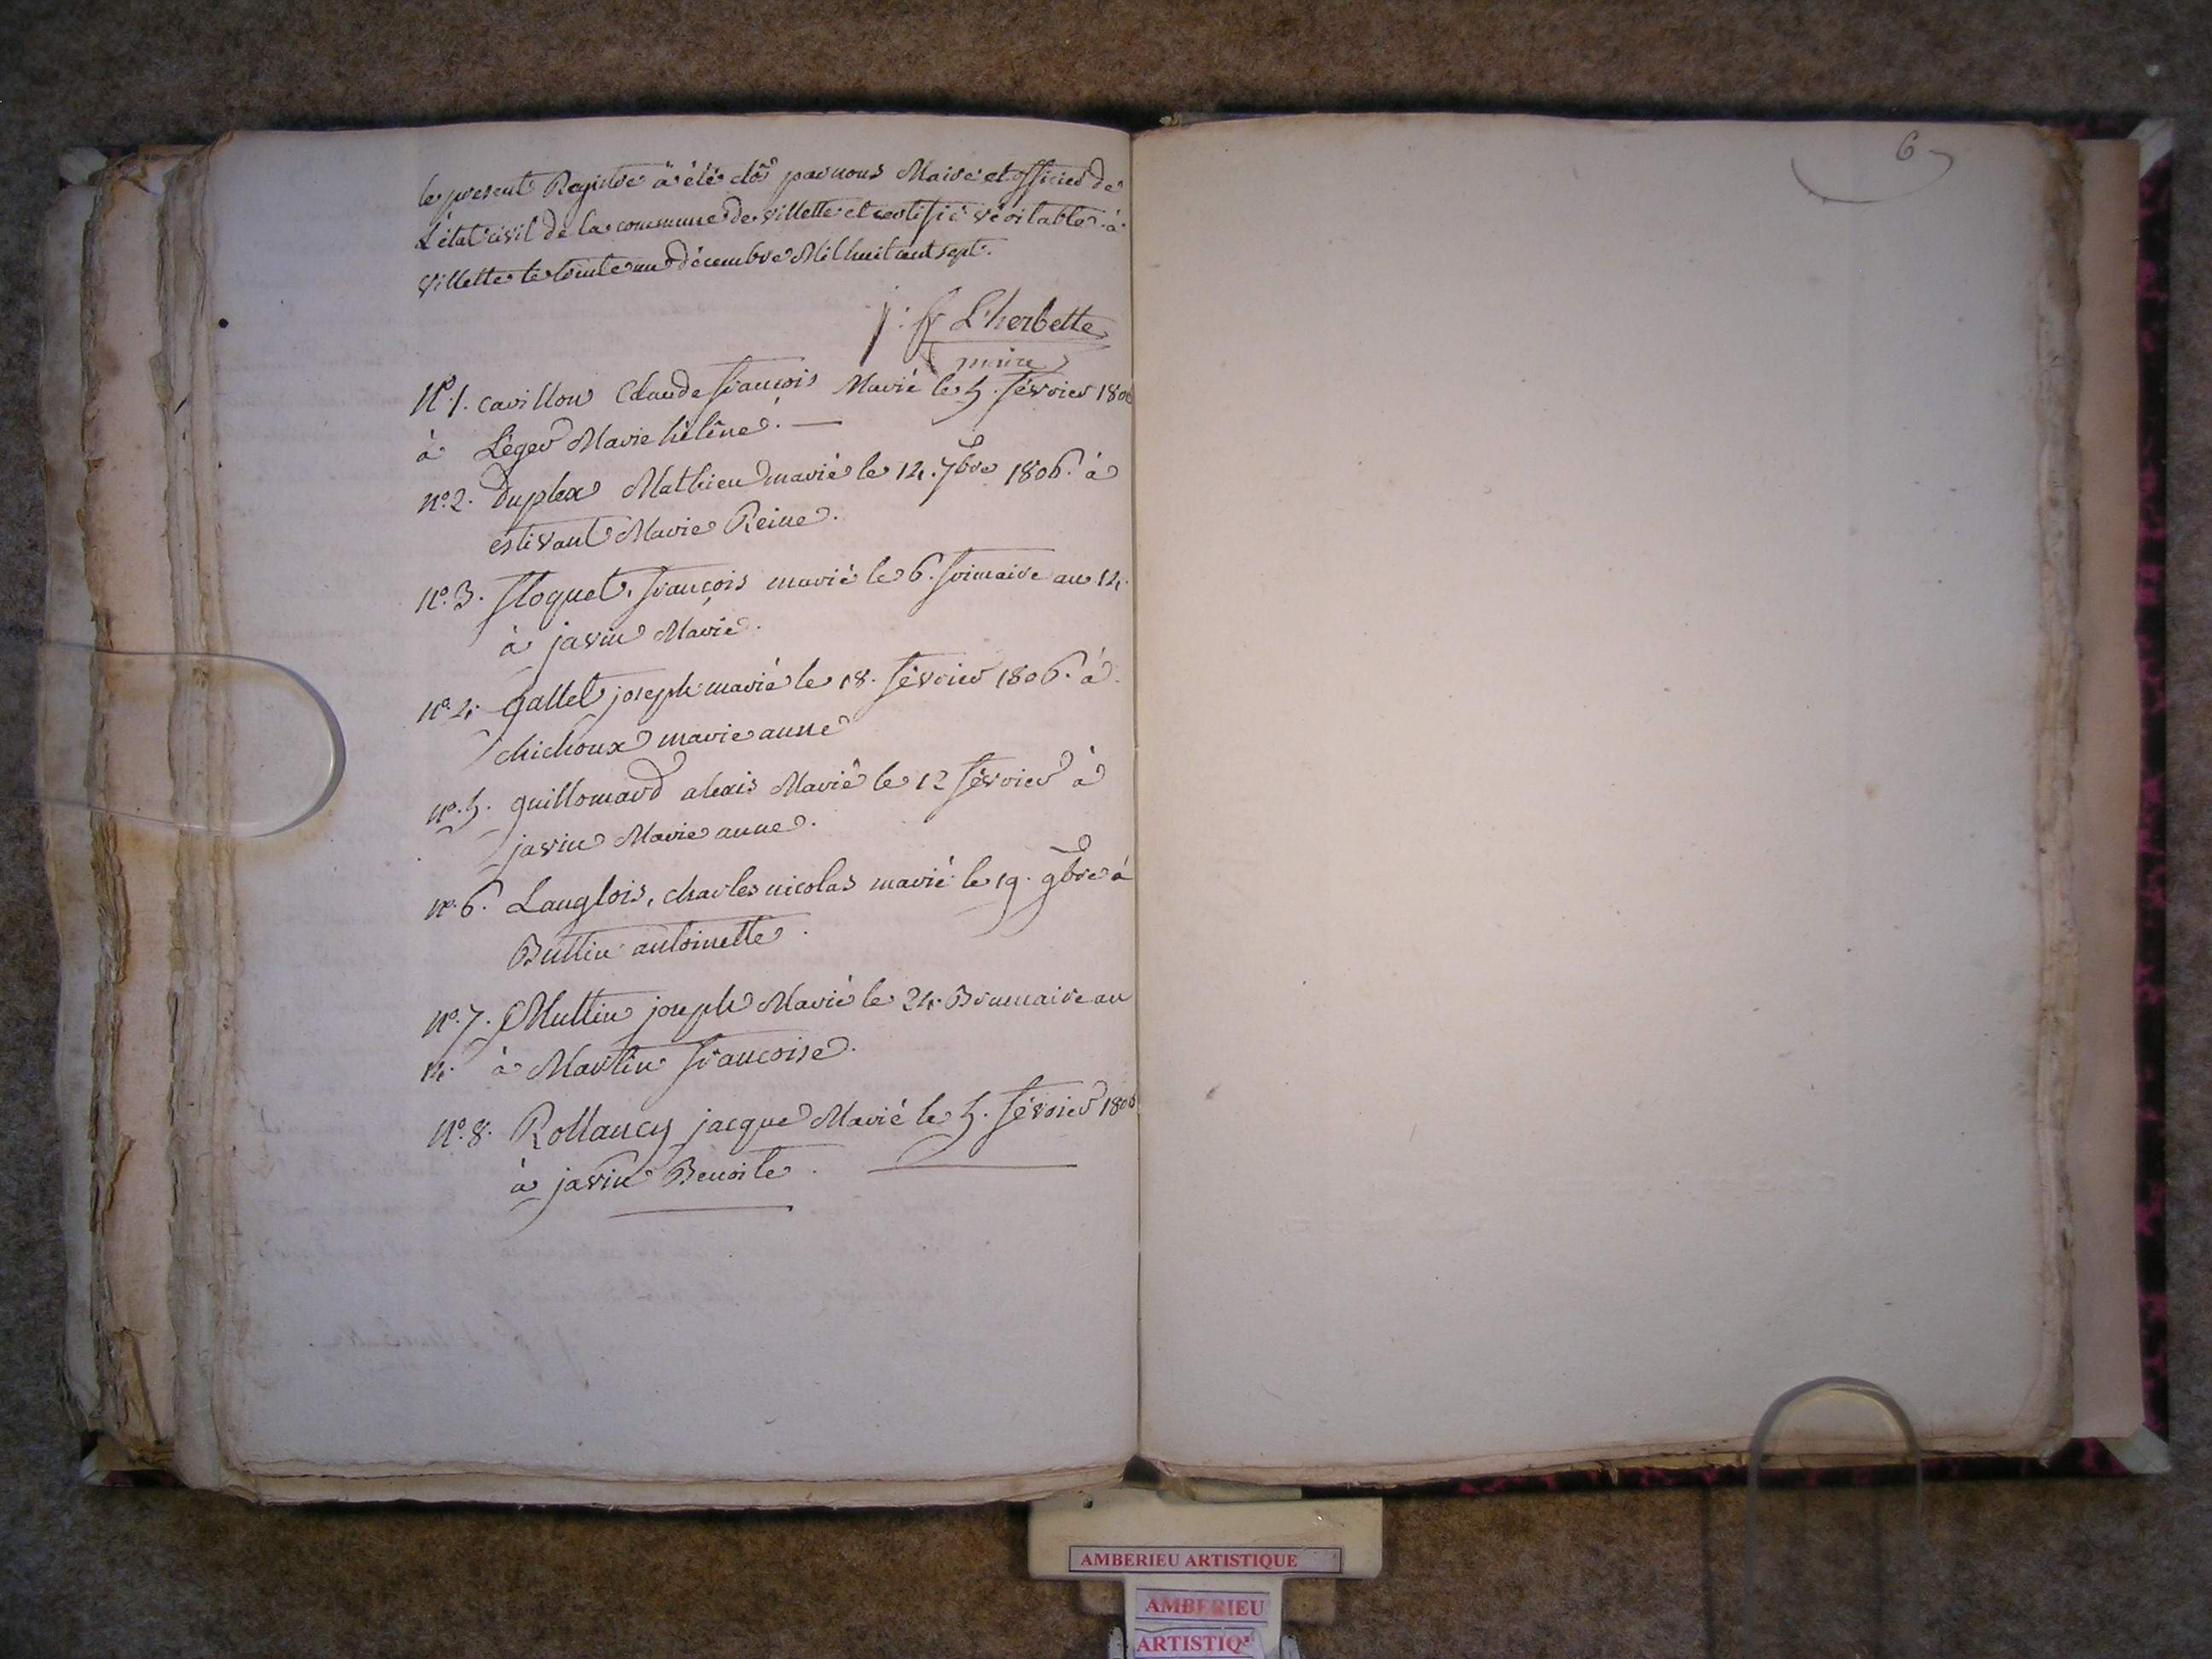 le present Registre a été clos par nous Maire et officier de
L'état civil de la commune de villette et certifié véritable à
villette le trente un décembre Mil huit cent sept.
j: fs L'herbette
maire
N.º 1. cavillon Claude françois Marié le 5. février 1806
à Léger Marie hélène.
nº. 2. Duplex Mathieu marié le 14. 7bre 1806. à
estivant Marie Reine.
nº. 3. floquet, françois marié le 6. frimaire an 14.
à javin Marie.
nº. 4. gallet joseph marié le 18. février 1806. à
chichoux marie anne
nº. 5. guillomard alexis Marié le 12 février à
javin Marie anne.
nº. 6. Langlois, charles nicolas marié le 19. 9bre à
Buttin antoinette.
Nº. 7. Muttin joseph Marié le 24. Brumaire an
14. à Martin françoise.
Nº. 8. Rollancy jacque Marié le 5. février 1806
à javin Benoite.
6
AMBERIEU ARTISTIQUE
AMBERIEU
ARTISTIQ